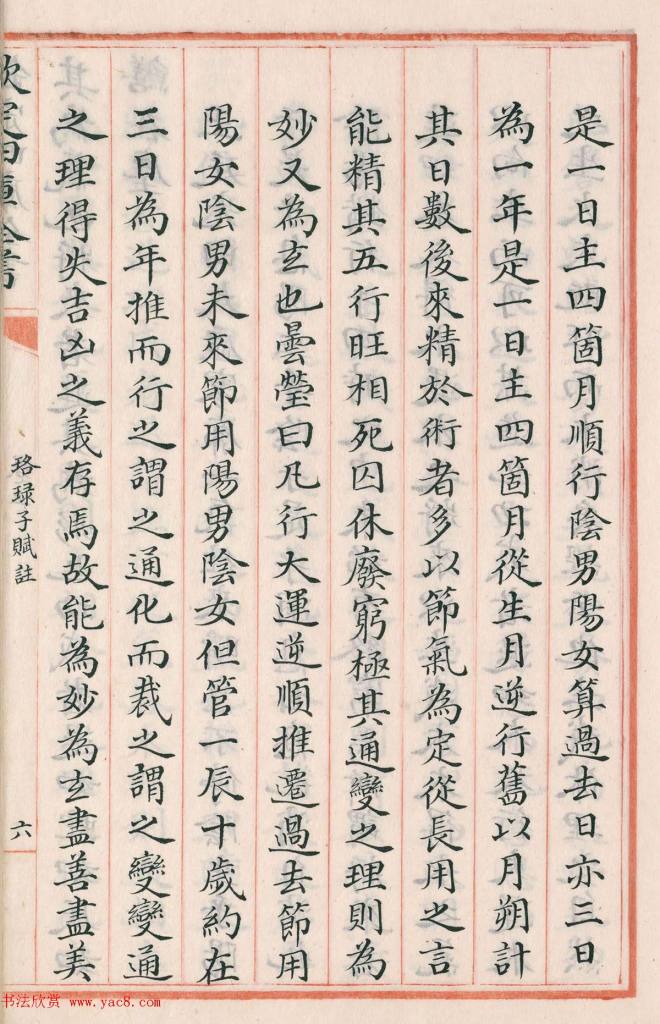 是一日主四箇月順行陰男陽女算過去日亦三日
為一年是一日主四箇月從生月逆行舊以月朔計
其日數後來精於術者多以節氣為定從長用之言
能精其五行旺相死囚休廢窮極其通變之理則為
妙又為玄也曇瑩曰凡行大運逆順推遷過去節用
陽女陰男未來節用陽男陰女但管一辰十歲約在
三日為年推而行之謂之通化而裁之謂之變變通
之理得失吉凶之義存焉故能為妙為玄盡善盡美
欽定四庫全書
珞琭子賦註
六
书法欣赏 www.yac8.com